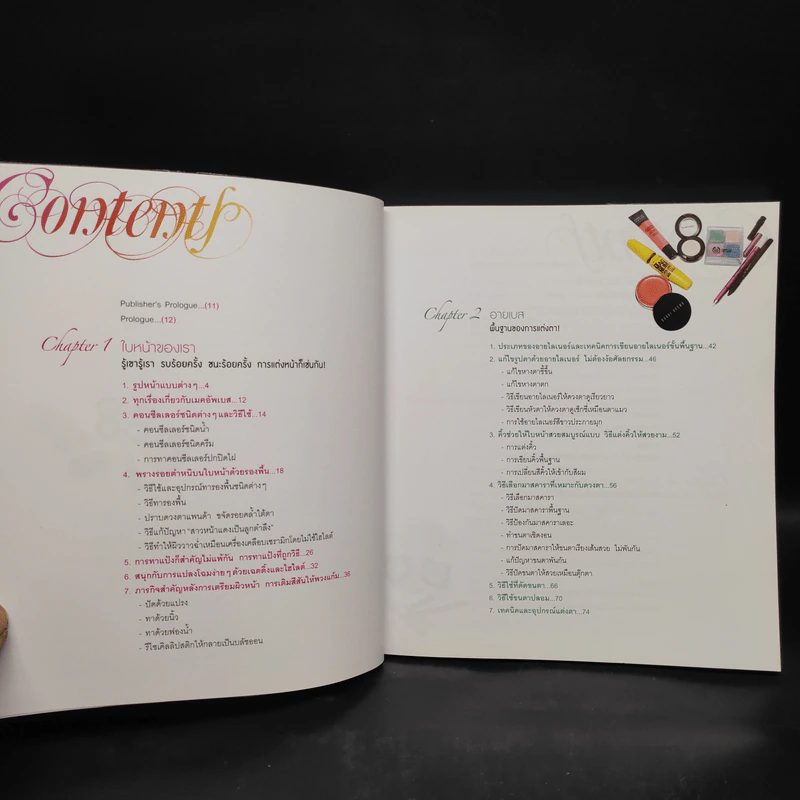 Contents
Publisher's Prologue...(11)
Prologue...(12)
Chapter 1 ใบหน้าของเรา
รู้เขารู้เรา รบร้อยครั้ง ชนะร้อยครั้ง การแต่งหน้าก็เช่นกัน!
1. รูปหน้าแบบต่างๆ...4
2. ทุกเรื่องเกี่ยวกับเมคอัพเบส...12
3. คอนซีลเลอร์ชนิดต่างๆ และวิธีใช้...14
- คอนซีลเลอร์ชนิดน้ำ
- คอนซีลเลอร์ชนิดครีม
- การทาคอนซีลเลอร์ปกปิดไฝ
4. พรางรอยตำหนิบนใบหน้าด้วยรองพื้น...18
- วิธีใช้และอุปกรณ์ทารองพื้นชนิดต่างๆ
- วิธีทารองพื้น
- ปราบดวงตาแพนด้า ขจัดรอยคล้ำใต้ตา
- วิธีแก้ปัญหา "สาวหน้าแดงเป็นลูกตำลึง"
- วิธีทำให้ผิววาวฉ่ำเหมือนเครื่องเคลือบเซรามิกโดยไม่ใช้ไฮไลต์
5. การทาแป้งก็สำคัญไม่แพ้กัน การทาแป้งที่ถูกวิธี...26
6. สนุกกับการแปลงโฉมง่ายๆ ด้วยเฉดดิ้งและไฮไลต์...32
7. ภารกิจสำคัญหลังการเตรียมผิวหน้า การเติมสีสันให้พวงแก้ม...36
- ปัดด้วยแปรง
- ทาด้วยนิ้ว
- ทาด้วยฟองน้ำ
- รีไซเคิลลิปสติกให้กลายเป็นบลัชออน
Chapter 2 อายเบส
พื้นฐานของการแต่งตา!
1. ประเภทของอายไลเนอร์และเทคนิคการเขียนอายไลเนอร์ขั้นพื้นฐาน...42
2. แก้ไขรูปตาด้วยอายไลเนอร์ ไม่ต้องง้อศัลยกรรม...46
- แก้ไขหางตาชี้ขึ้น
- แก้ไขหางตาตก
- วิธีเขียนอายไลเนอร์ให้ดวงตาดูเรียวยาว
- วิธีเขียนหัวตาให้ดวงตาดูเซ็กซี่เหมือนตาแมว
- การใช้อายไลเนอร์สีขาวประกายมุก
3. คิ้วช่วยให้ใบหน้าสวยสมบูรณ์แบบ วิธีแต่งคิ้วให้สวยงาม...52
- การแต่งคิ้ว
- การเขียนคิ้วพื้นฐาน
- การเปลี่ยนสีคิ้วให้เข้ากับสีผม
4. วิธีเลือกมาสคาราที่เหมาะกับดวงตา...56
- วิธีเลือกมาสคารา
- วิธีปัดมาสคาราพื้นฐาน
- วิธีป้องกันมาสคาราเลอะ
- ทำขนตาเชิดงอน
- การปัดมาสคาราให้ขนตาเรียงเส้นสวย ไม่พันกัน
- แก้ปัญหาขนตาพันกัน
- วิธีปัดขนตาให้สวยเหมือนตุ๊กตา
5. วิธีใช้ที่ดัดขนตา...66
6. วิธีใช้ขนตาปลอม...70
7. เทคนิคและอุปกรณ์แต่งตา...74